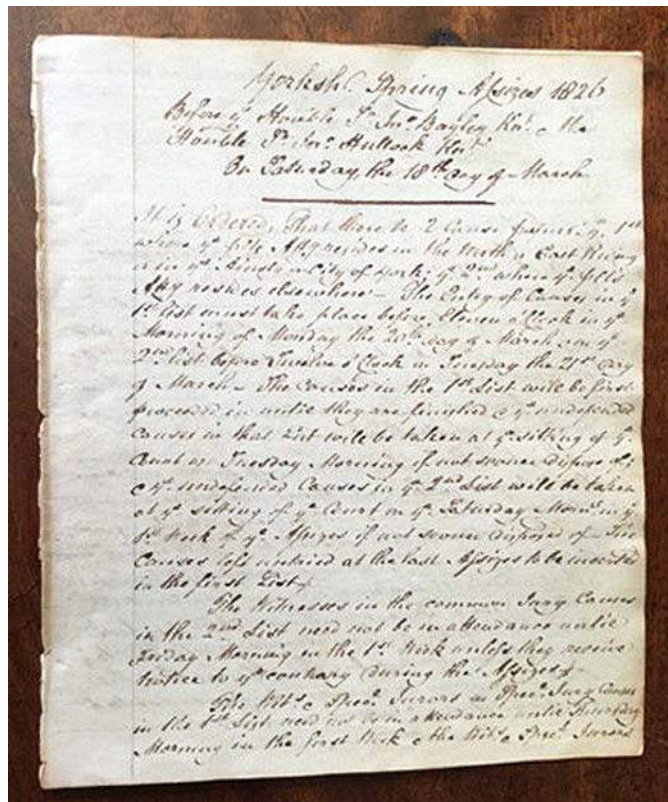 Yorksh. Spring Assizes 1826
Before ye Honble Sr Jno. Bayley Knt. & the
Honble Sr Jno. Hullock Knt.
On Saturday, the 18th day of March
It is Ordered, That there be 2 Cause ye 1st
where ye Atty resides in the North or East Riding
or in ye Ainsty or City of York; ye 2nd where ye
Atty resides elsewhere – The Entry of Causes in ye
1st List must take place before Eleven o'Clock in ye
Morning of Monday the 20th day of March & ye
2nd List before Twelve o'Clock on Tuesday the 21st day
of March – The causes in the 1st List will be first
proceeded in until they are finished & ye undefended
causes in that List will be taken at ye sitting of ye
Court on Tuesday Morning if not sooner disposed of;
& ye undefended Causes in ye 2nd List will be taken
at ye sitting of ye Court on ye Saturday Morng. in ye
1st Week of ye Assizes if not sooner disposed of – The
causes left untried at the last Assizes to be inserted
in the first List
The Witnesses in the common Jury Causes
in the 2nd List need not be in attendance until
Friday Morning in the 1st Week unless they receive
notice to ye contrary during the Assizes
The Wits. & Specl. Jurors in Specl. Jury Causes
in the 1st List need not be in attendance until Thursday
Morning in the first Week & the Wits. & Specl. Jurors